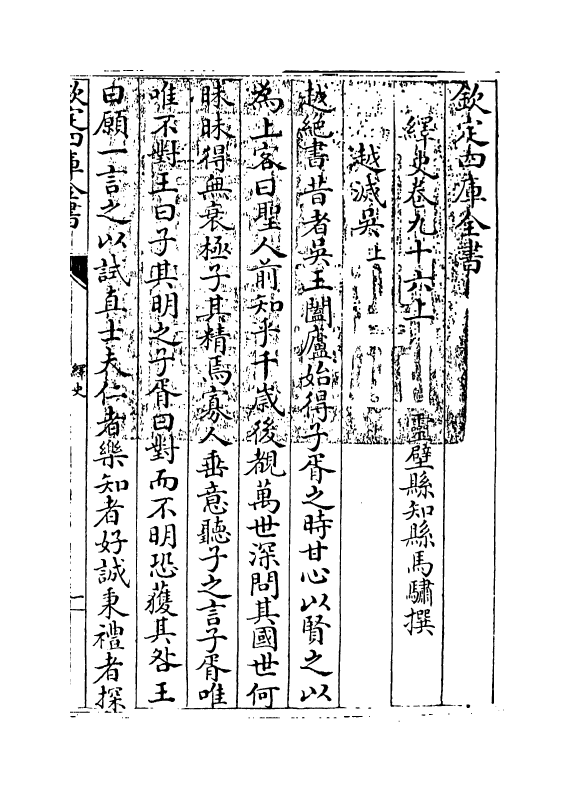 欽定四庫全書
繹史卷九十六上
靈壁縣知縣馬驌撰
越滅吳上
越絶書昔者吳王闔廬始得子胥之時甘心以賢之以
為上客曰聖人前知乎千歳後覩萬世深問其國世何
昧昧得無衰極子其精焉寡人垂意聽子之言子胥唯
唯不對王曰子其明之子胥曰對而不明恐獲其咎王
曰願一言之以試直士夫仁者樂知者好誠秉禮者探
欽定四庫全書
繹史
一